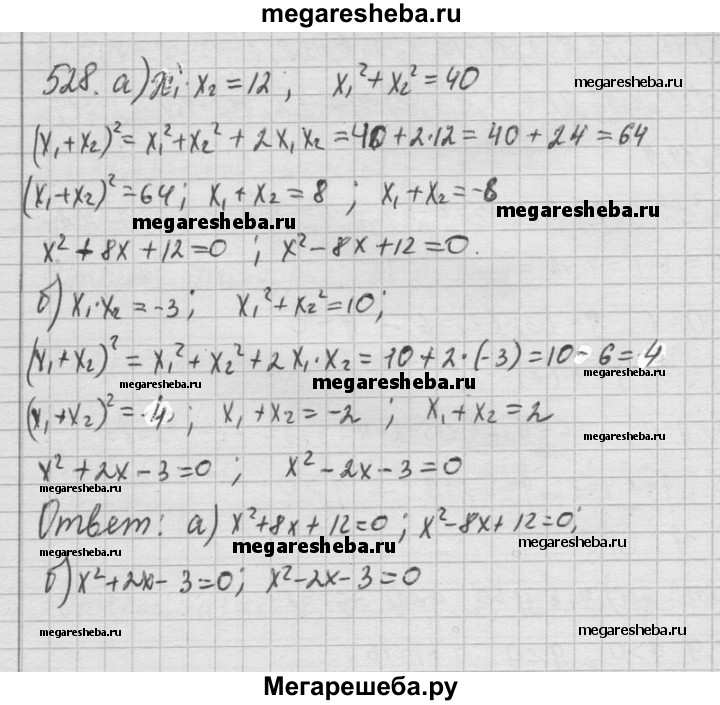 megaresheba.ru
528. а) x₁·x₂ = 12 ; x₁² + x₂² = 40
megaresheba.ru
(x₁+x₂)² = x₁²+x₂² + 2x₁x₂ = 40+2·12 = 40+24 = 64
(x₁+x₂)² = 64; x₁+x₂ = 8 ; x₁+x₂ = -8
megaresheba.ru megaresheba.ru
x² + 8x + 12 = 0 ; x² - 8x + 12 = 0.
б) x₁·x₂ = -3 ; x₁² + x₂² = 10;
(x₁+x₂)² = x₁²+x₂²+2x₁·x₂ = 10+2·(-3) = 10-6 = 4
megaresheba.ru megaresheba.ru megaresheba.ru
(x₁+x₂)² = 4; x₁+x₂ = -2 ; x₁+x₂ = 2
x² + 2x - 3 = 0 ; x² - 2x - 3 = 0
megaresheba.ru
Ответ: а) x²+8x+12=0; x²-8x+12=0;
megaresheba.ru megaresheba.ru
б) x²+2x-3=0; x²-2x-3=0
megaresheba.ru megaresheba.ru
Мегарешеба.ру